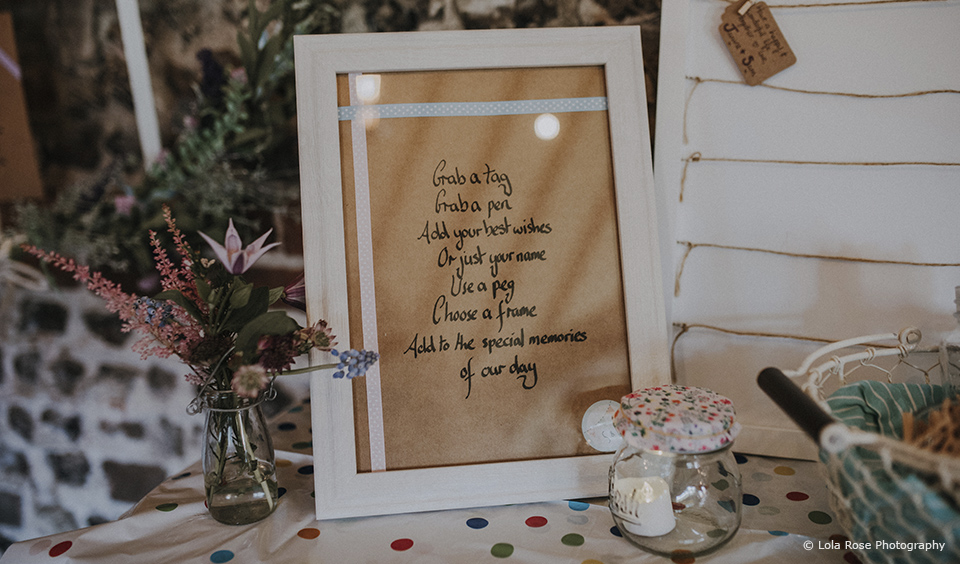 Grab a tag
Grab a pen
Add your best wishes
Or just your name
Use a peg
Choose a frame
Add to the special memories
of our day
© Lola Rose Photography